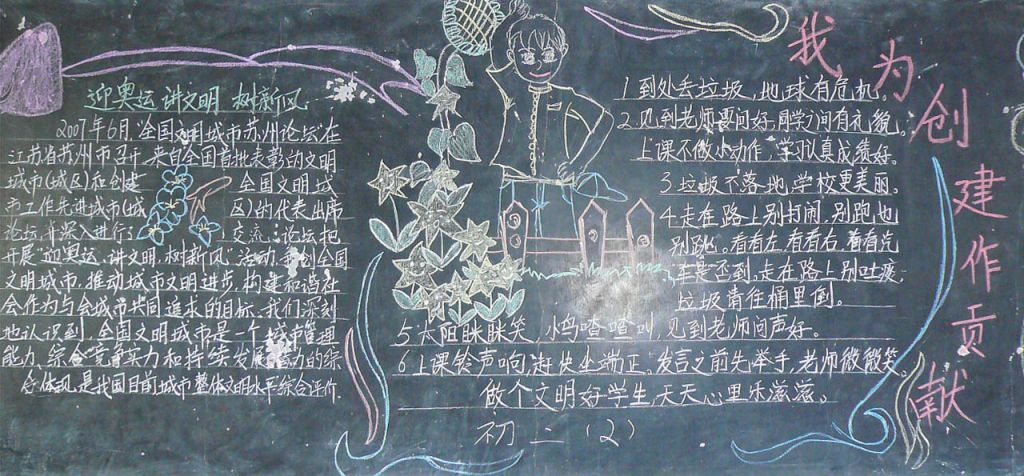 迎奥运 讲文明 树新风
2007年6月,全国文明城市苏州论坛在
江苏省苏州市召开,来自全国首批表彰的文明
城市(城区)和创建 全国文明城
市工作先进城市(城 区)的代表出席
论坛并深入进行了 交流;论坛把
开展"迎奥运、讲文明、树新风"活动,争创全国
文明城市,推动城市文明进步,构建和谐社
会作为与会城市共同追求的目标、我们深刻
地认识到,全国文明城市是一个城市管理
能力、综合竞争实力和持续发展能力的综
合体现,是我国目前城市整体文明水平综合评价.
我为创建作贡献
1 到处丢垃圾,地球有危机。
2.见到老师要问好,同学之间有礼貌。
上课不做小动作,学习认真成绩好。
3 垃圾不落地,学校更美丽。
4.走在路上别打闹,别跑也
别跳。看看左,看看右,看看先
车辆否到,走在路上别吐痰,
垃圾请往桶里倒。
5 太阳眯眯笑 小鸟喳喳叫,见到老师问声好。
6 上课铃声响,赶快坐端正。发言之前先举手,老师微微笑。
做个文明好学生,天天心里乐滋滋。
初二(2)